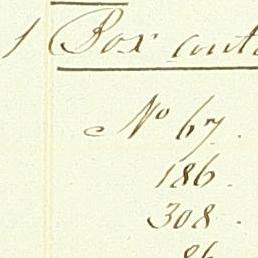 1 Box cont
No 67.
186.
308.
86